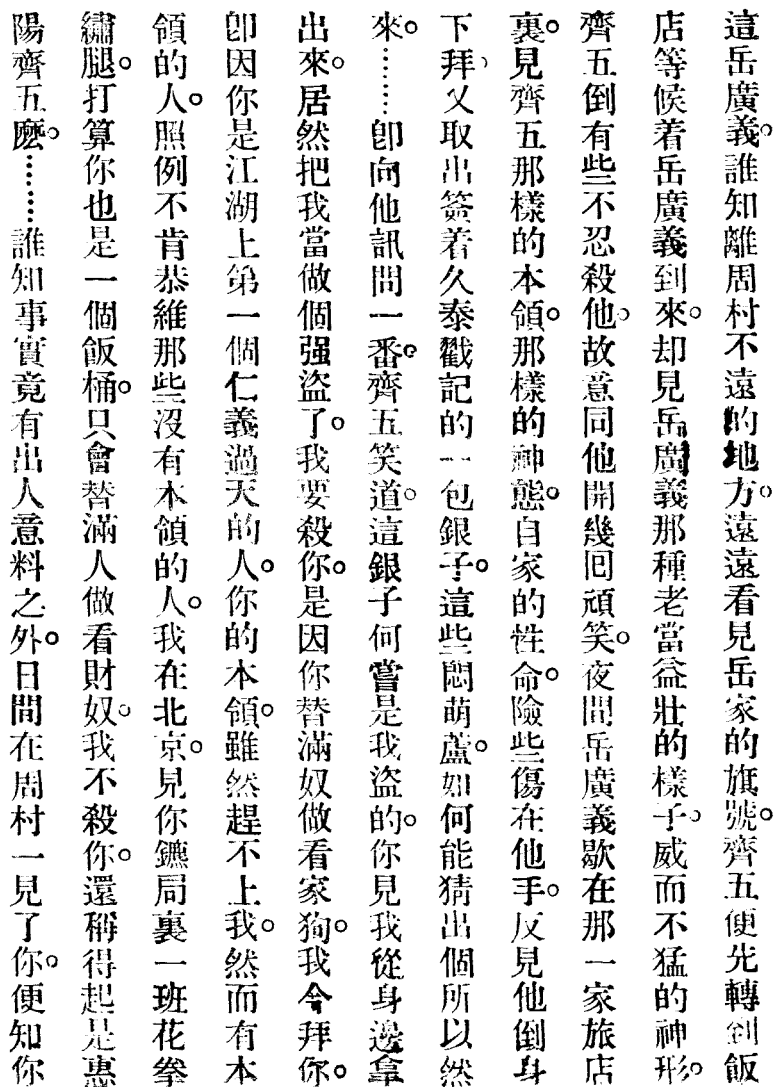 這岳廣義。誰知離周村不遠的地方。遠遠看見岳家的旗號。齊五便先轉到飯
店等候着岳廣義到來。却見岳廣義那種老當益壯的樣子。威而不猛的神形。
齊五倒有些不忍殺他。故意同他開幾囘頑笑。夜間岳廣義歇在那一家旅店
裏。見齊五那樣的本領。那樣的神態。自家的性命。險些傷在他手。反見他倒身
下拜、又取出簽着久泰戳記的一包銀子。這些悶葫蘆。如何能猜出個所以然
來。……卽向他訊問一番。齊五笑道。這銀子何嘗是我盜的。你見我從身邊拿
出來。居然把我當做個强盜了。我要殺你。是因你替滿奴做看家狗。我今拜你。
卽因你是江湖上第一個仁義過天的人。你的本領。雖然趕不上我。然而有本
領的人。照例不肯恭維那些沒有本領的人。我在北京。見你鑣局裏一班花拳
繡腿。打算你也是一個飯桶。只會替滿人做看財奴。我不殺你。還稱得起是惠
陽齊五麽。……誰知事實竟有出人意料之外。日間在周村一見了你。便知你